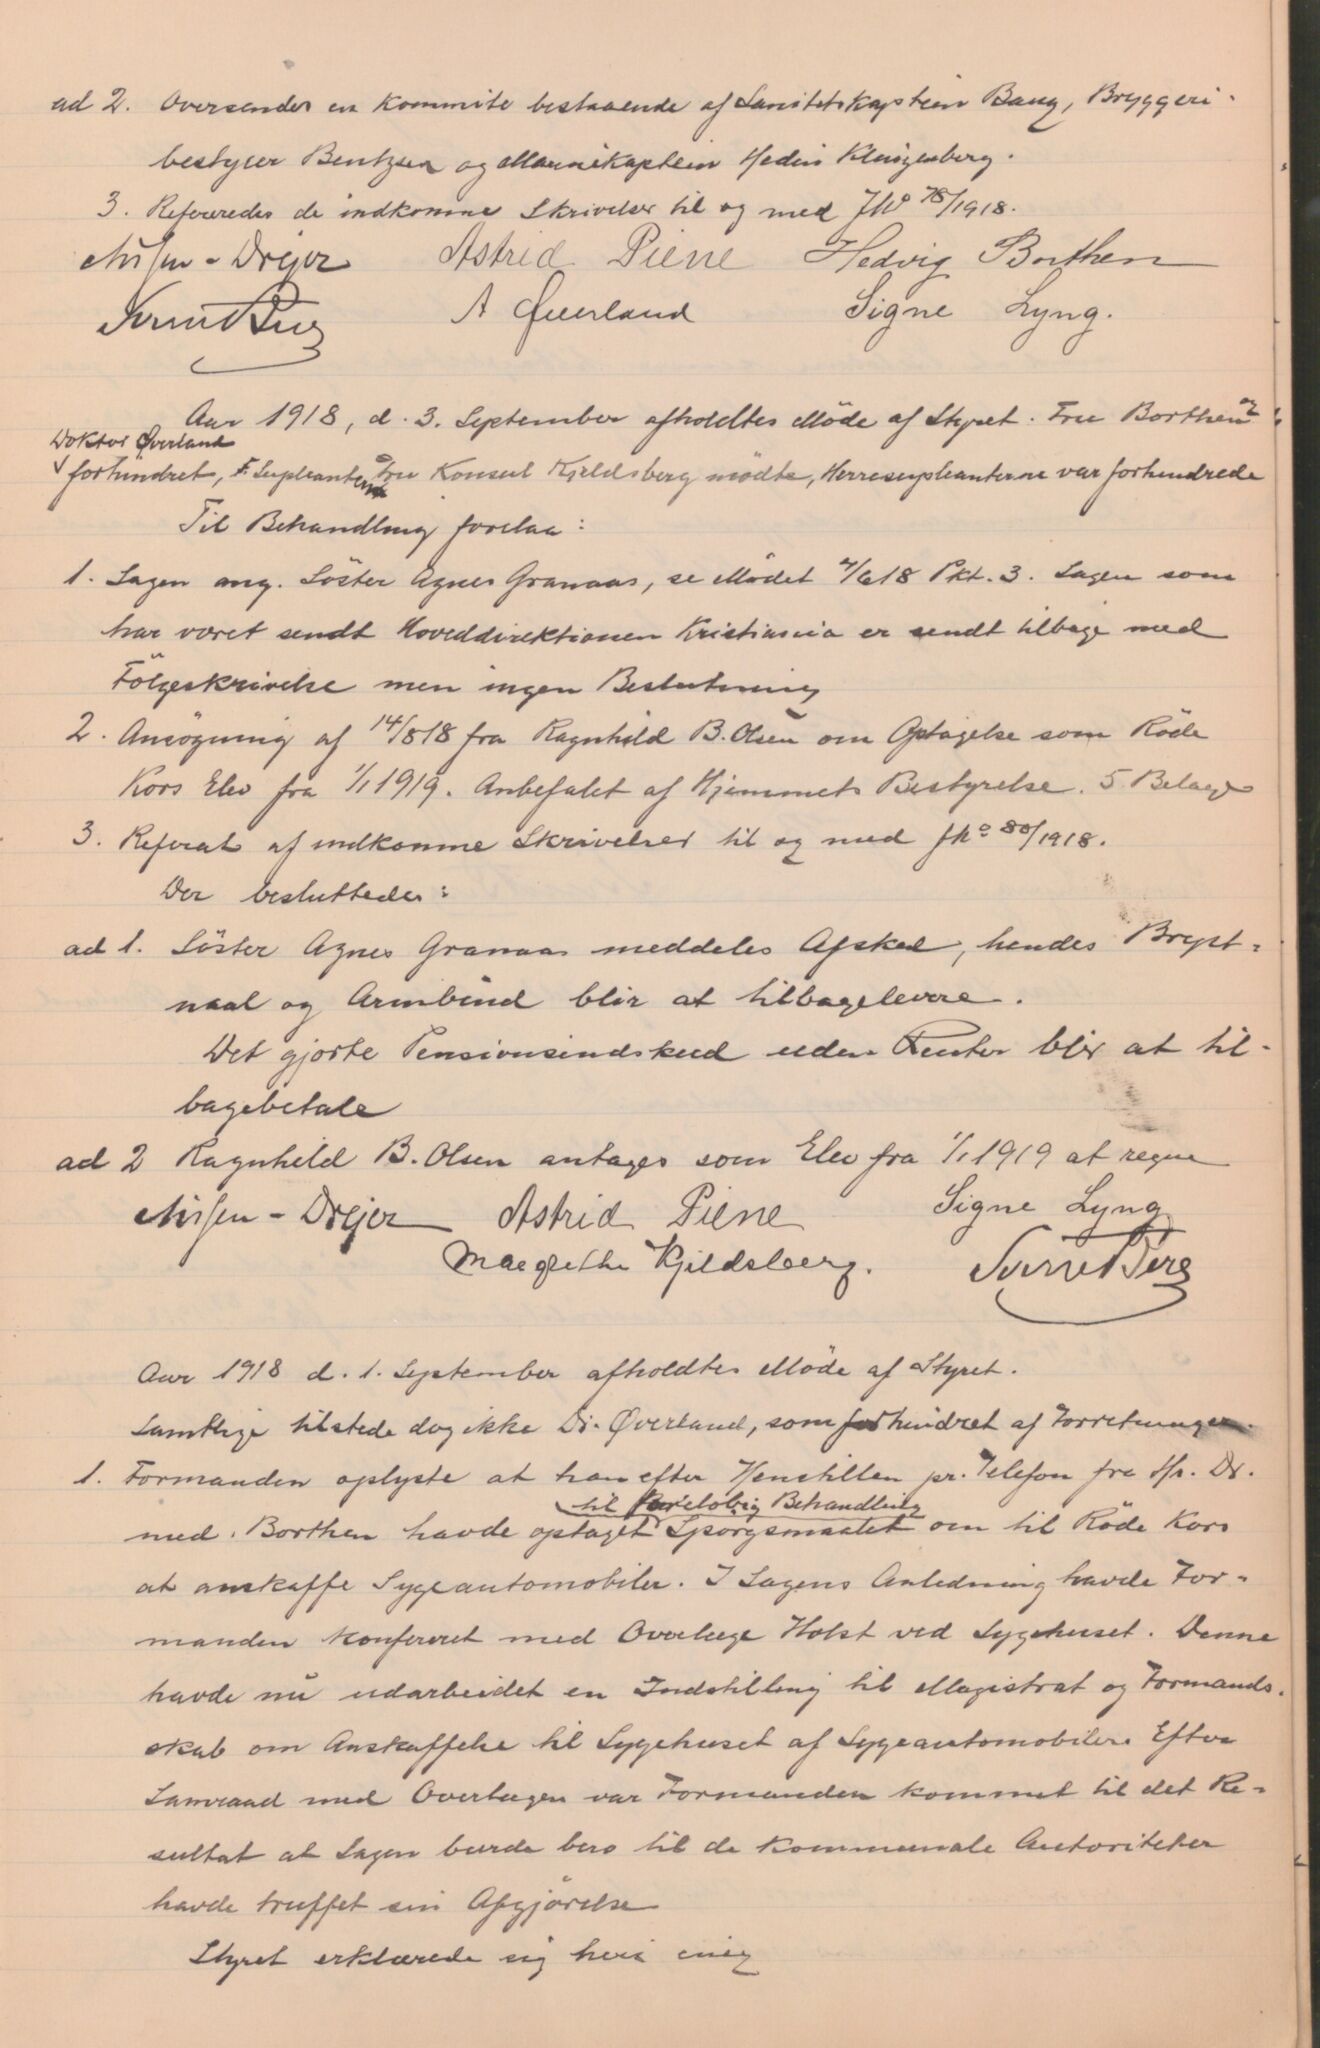 ad 2. Oversendes en Kommite bestaaende af Sanitetskaptein Bang, Bryggeri-
bestyrer Bentzen og Marinekaptein Hedin Klingenberg.
3. Refereredes de indkomne Skrivelser til og med JNo 78/1918.
Nissen-Drejer Astrid Piene Hedvig Borthen
Sverre Berg A Øverland Signe Lyng.
Aar 1918, d. 3. September afholdtes Möde af Styret. Fru Borthen og
Doktor Øverland
forhindret, F. Supleanten Fru Konsul Kjeldsberg mødte, Herresupleanterne var forhindrede
Til Behandling forelaa:
1. Sagen ang. Söster Agnes Granaas, se Mödet 4/618 Pkt. 3. Sagen som
har været sendt Hoveddirektionen Kristiania er sendt tilbage med
Fölgeskrivelse men ingen Beslutning
2. Ansögning af 14/818 fra Ragnhild B. Olsen om Optagelse som Röde
Kors Elev fra 1/1 1919. Anbefalet af Hjemmets Bestyrelse. 5 Belage
3. Referat af indkomne Skrivelser til og med JNo 80/1918.
Der besluttedes:
ad 1. Söster Agnes Granaas meddeles Afsked, hendes Bryst-
naal og Armbind blir at tilbagelevere.
Det gjorte Pensionsindskud uden Renter blir at til-
bagebetale
ad 2 Ragnhild B. Olsen antages som Elev fra 1/1 1919 at regne
Nissen-Drejer Astrid Piene Signe Lyng
Margrethe Kjeldsberg. Sverre Berg
Aar 1918 d. 1. September afholdtes Möde af Styret.
Samtlige tilstede dog ikke Dr. Øverland, som forhindret af Forretninger.
1. Formanden oplyste at han efter Henstillen pr. Telefon fra Hr. Dr.
til foreløbig Behandling
med. Borthen havde optaget Spörgsmaalet om til Röde Kors
at anskaffe Sygeautomobiler. I Sagens Anledning havde For-
manden konfereret med Overlæge Holst ved Sygehuset. Denne
havde nu udarbeidet en Indstilling til Magistrat og Formands-
skab om Anskaffelse til Sygehuset af Sygeautomobiler. Efter
Samraad med Overlægen var Formanden kommet til det Re-
sultat at Sagen burde bero til de kommunale Autoriteter
havde truffet sin Afgjörelse
Styret erklærede sig heri enig